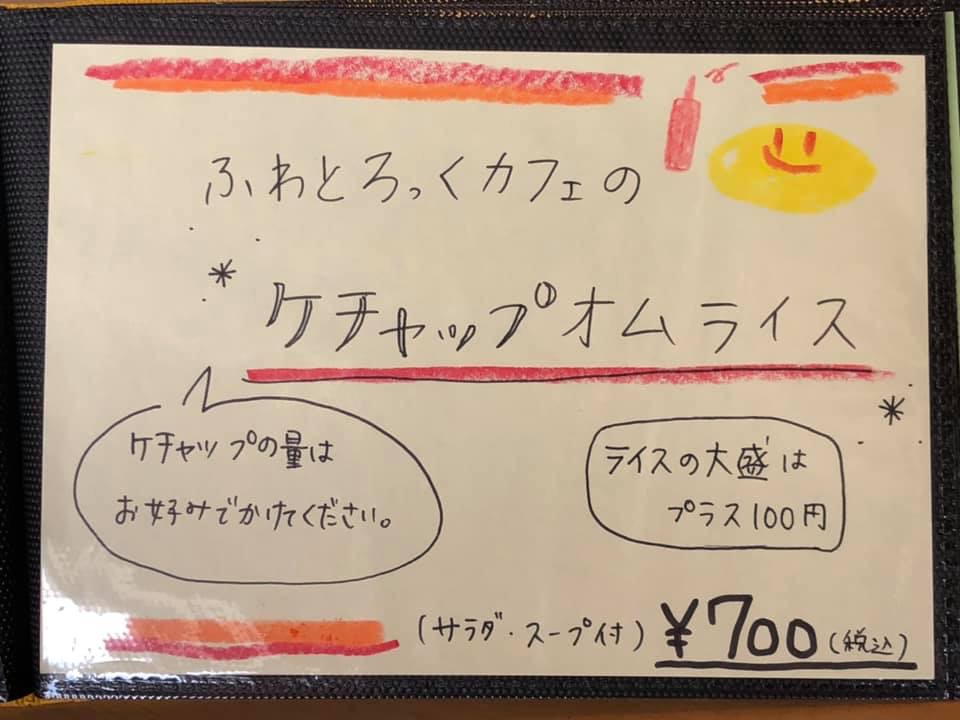 ふわとろっくカフェの
ケチャップオムライス
ケチャップの量は
お好みでかけてください。
ライスの大盛は
プラス100円
(サラダ・スープ付) ¥700(税込)